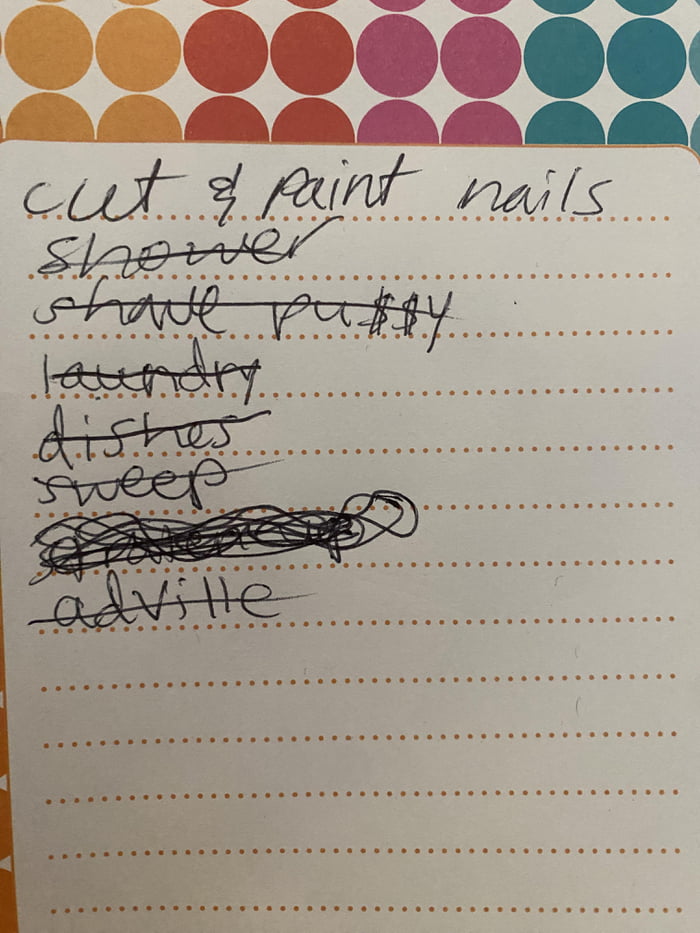 cut & paint nails
shower
shave pu$$y
laundry
dishes
sweep
adville